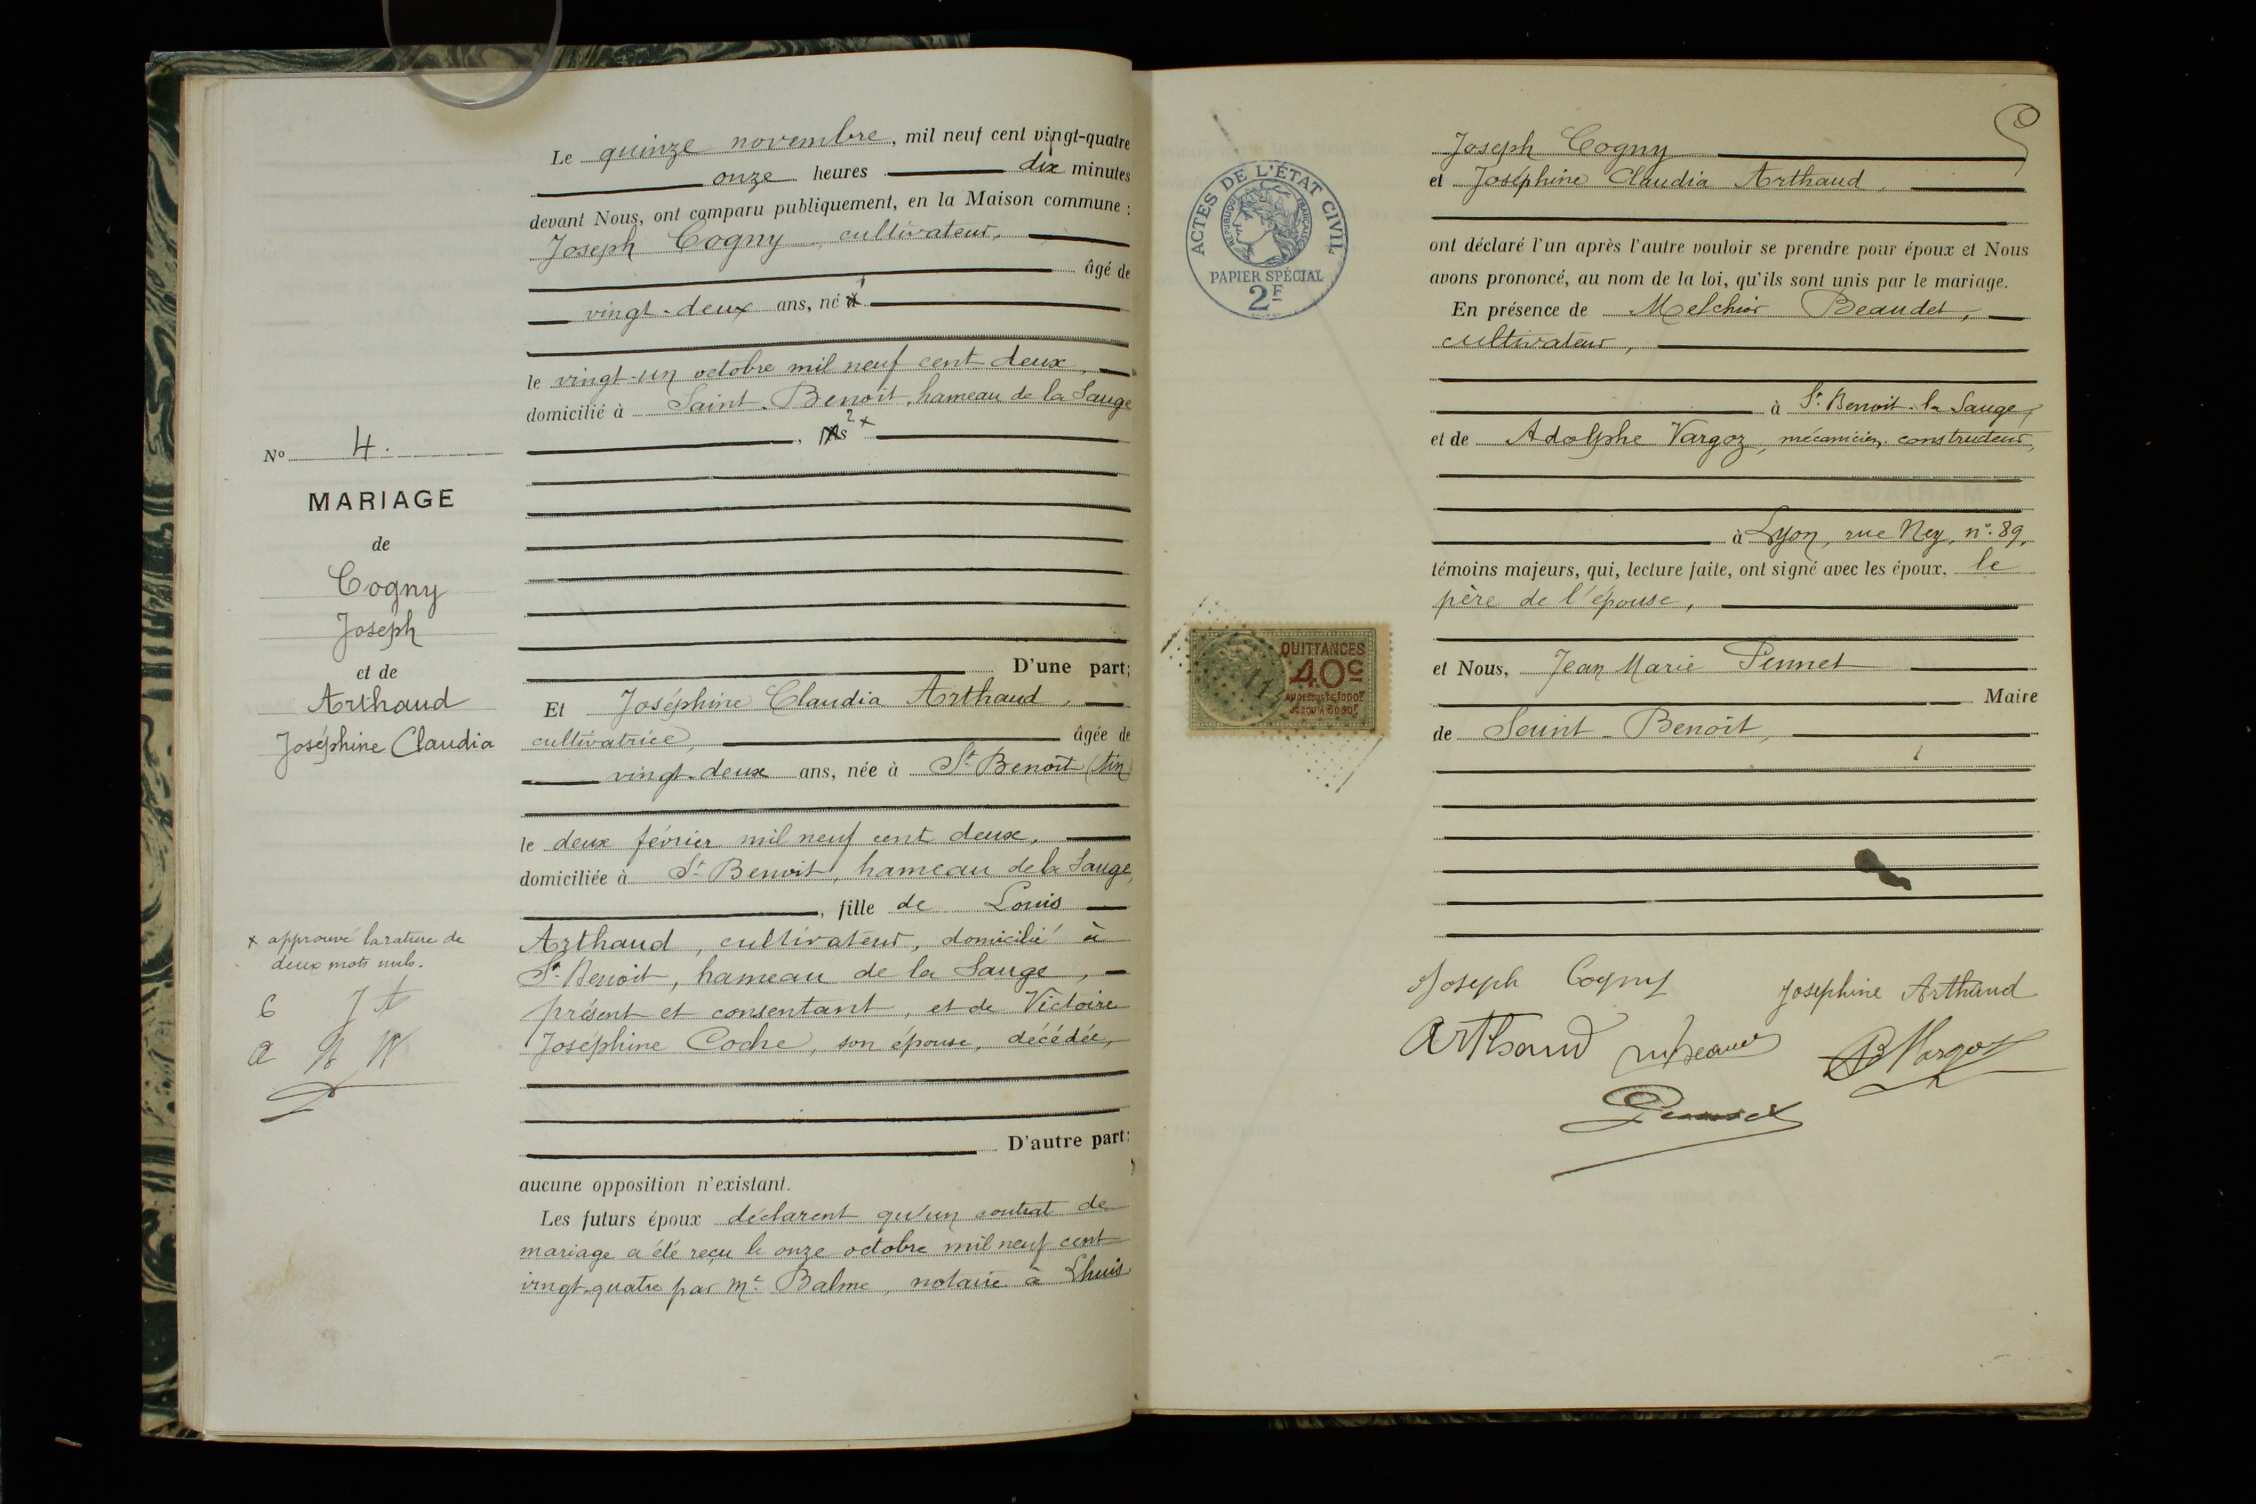 Le quinze novembre, mil neuf cent vingt-quatre
onze heures dix minutes
devant Nous, ont comparu publiquement, en la Maison commune :
Joseph Cogny cultivateur,
âgé de
vingt-deux ans, né à
le vingt-un octobre mil neuf cent deux,
domicilié à Saint-Benoit, hameau de la Sauge
, fils
D'une part;
Et Joséphine Claudia Arthaud,
cultivatrice, âgée de
vingt-deux ans, née à St Benoit (Ain)
le deux février mil neuf cent deux,
domiciliée à St Benoit, hameau de la Sauge,
, fille de Louis
Arthaud, cultivateur, domicilié à
St Benoit, hameau de la Sauge,
présent et consentant, et de Victoire
Joséphine Coche, son épouse, décédée,
D'autre part;
aucune opposition n'existant.
Les futurs époux déclarent qu'un contrat de
mariage a été reçu le onze octobre mil neuf cent
vingt-quatre par Me Balme, notaire à Lhuis
No 4.
MARIAGE
de
Cogny
Joseph
et de
Arthaud
Joséphine Claudia
x approuvé la rature de
deux mots nuls.
ACTES DE L'ÉTAT CIVIL
RÉPUBLIQUE FRANÇAISE
PAPIER SPÉCIAL
2F
QUITTANCES
40c
Joseph Cogny
et Joséphine Claudia Arthaud,
ont déclaré l'un après l'autre vouloir se prendre pour époux et Nous
avons prononcé, au nom de la loi, qu'ils sont unis par le mariage.
En présence de Melchior Beaudet,
cultivateur,
à St Benoit-la Sauge,
et de Adolphe Vargoz, mécanicien constructeur,
à Lyon, rue Ney, no. 89,
témoins majeurs, qui, lecture faite, ont signé avec les époux, le
père de l'épouse,
et Nous, Jean Marie Pennet
Maire
de Saint-Benoît,
Joseph Cogny Joséphine Arthaud
Arthaud